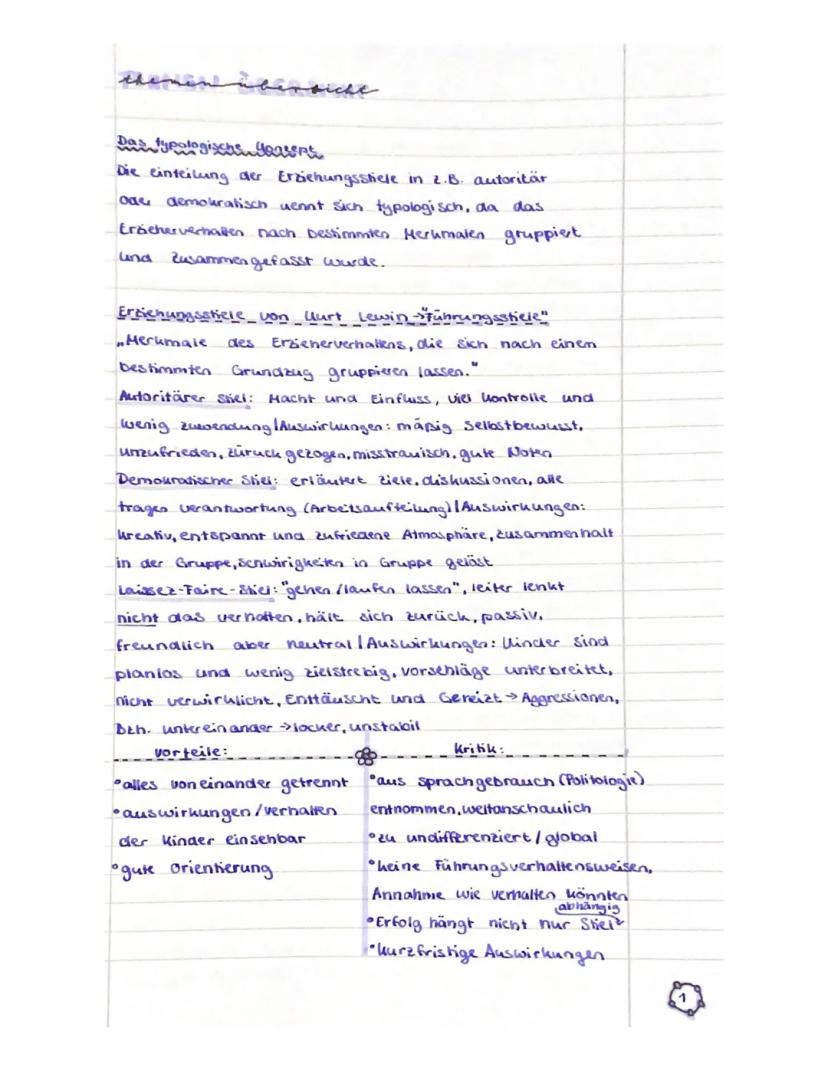 themen übersicht
Das typologische Konzept
Die einteilung der Erziehungsstiele in z.B. autoritär
oder demokratisch nennt sich typologisch, da das
Erzieherverhalten nach bestimmten Merkmalen gruppiert
und zusammengefasst wurde.
Erziehungsstiele von Kurt Lewin → "Führungsstiele"
„Merkmale des Erzieherverhaltens, die sich nach einem
bestimmten Grundzug gruppieren lassen."
Autoritärer Stiel: Macht und Einfluss, viel Kontrolle und
wenig zuwendung | Auswirkungen: mäßig Selbstbewusst,
unzufrieden, zürück gezogen, misstrauisch, gute Noten
Demokratischer Stiel: erläutert ziele, diskussionen, alle
tragen verantwortung (Arbeitsaufteilung) | Auswirkungen:
kreativ, entspannt und zufriedene Atmosphäre, zusammenhalt
in der Gruppe, Schwirigkeiten in Gruppe gelöst
Laissez-Faire-Stiel: "gehen/laufen lassen", leiter lenkt
nicht das verhalten, hält sich zurück, passiv,
freundlich aber neutral | Auswirkungen: Kinder sind
planlos und wenig zielstrebig, vorschläge unterbreitet,
nicht verwirklicht, Enttäuscht und Gereizt → Aggressionen,
Bzh. untereinander → locker, unstabil
vorteile:
°alles voneinander getrennt
°auswirkungen/verhalten
der Kinder einsehbar
°gute orientierung
Kritik:
°aus sprachgebrauch (Politologie)
entnommen, weltanschaulich
°zu undifferenziert/global
°keine Führungsverhaltensweisen,
Annahme wie verhalten könnten
°Erfolg hängt nicht nur Stiel abhängig
°kurzfristige Auswirkungen
1